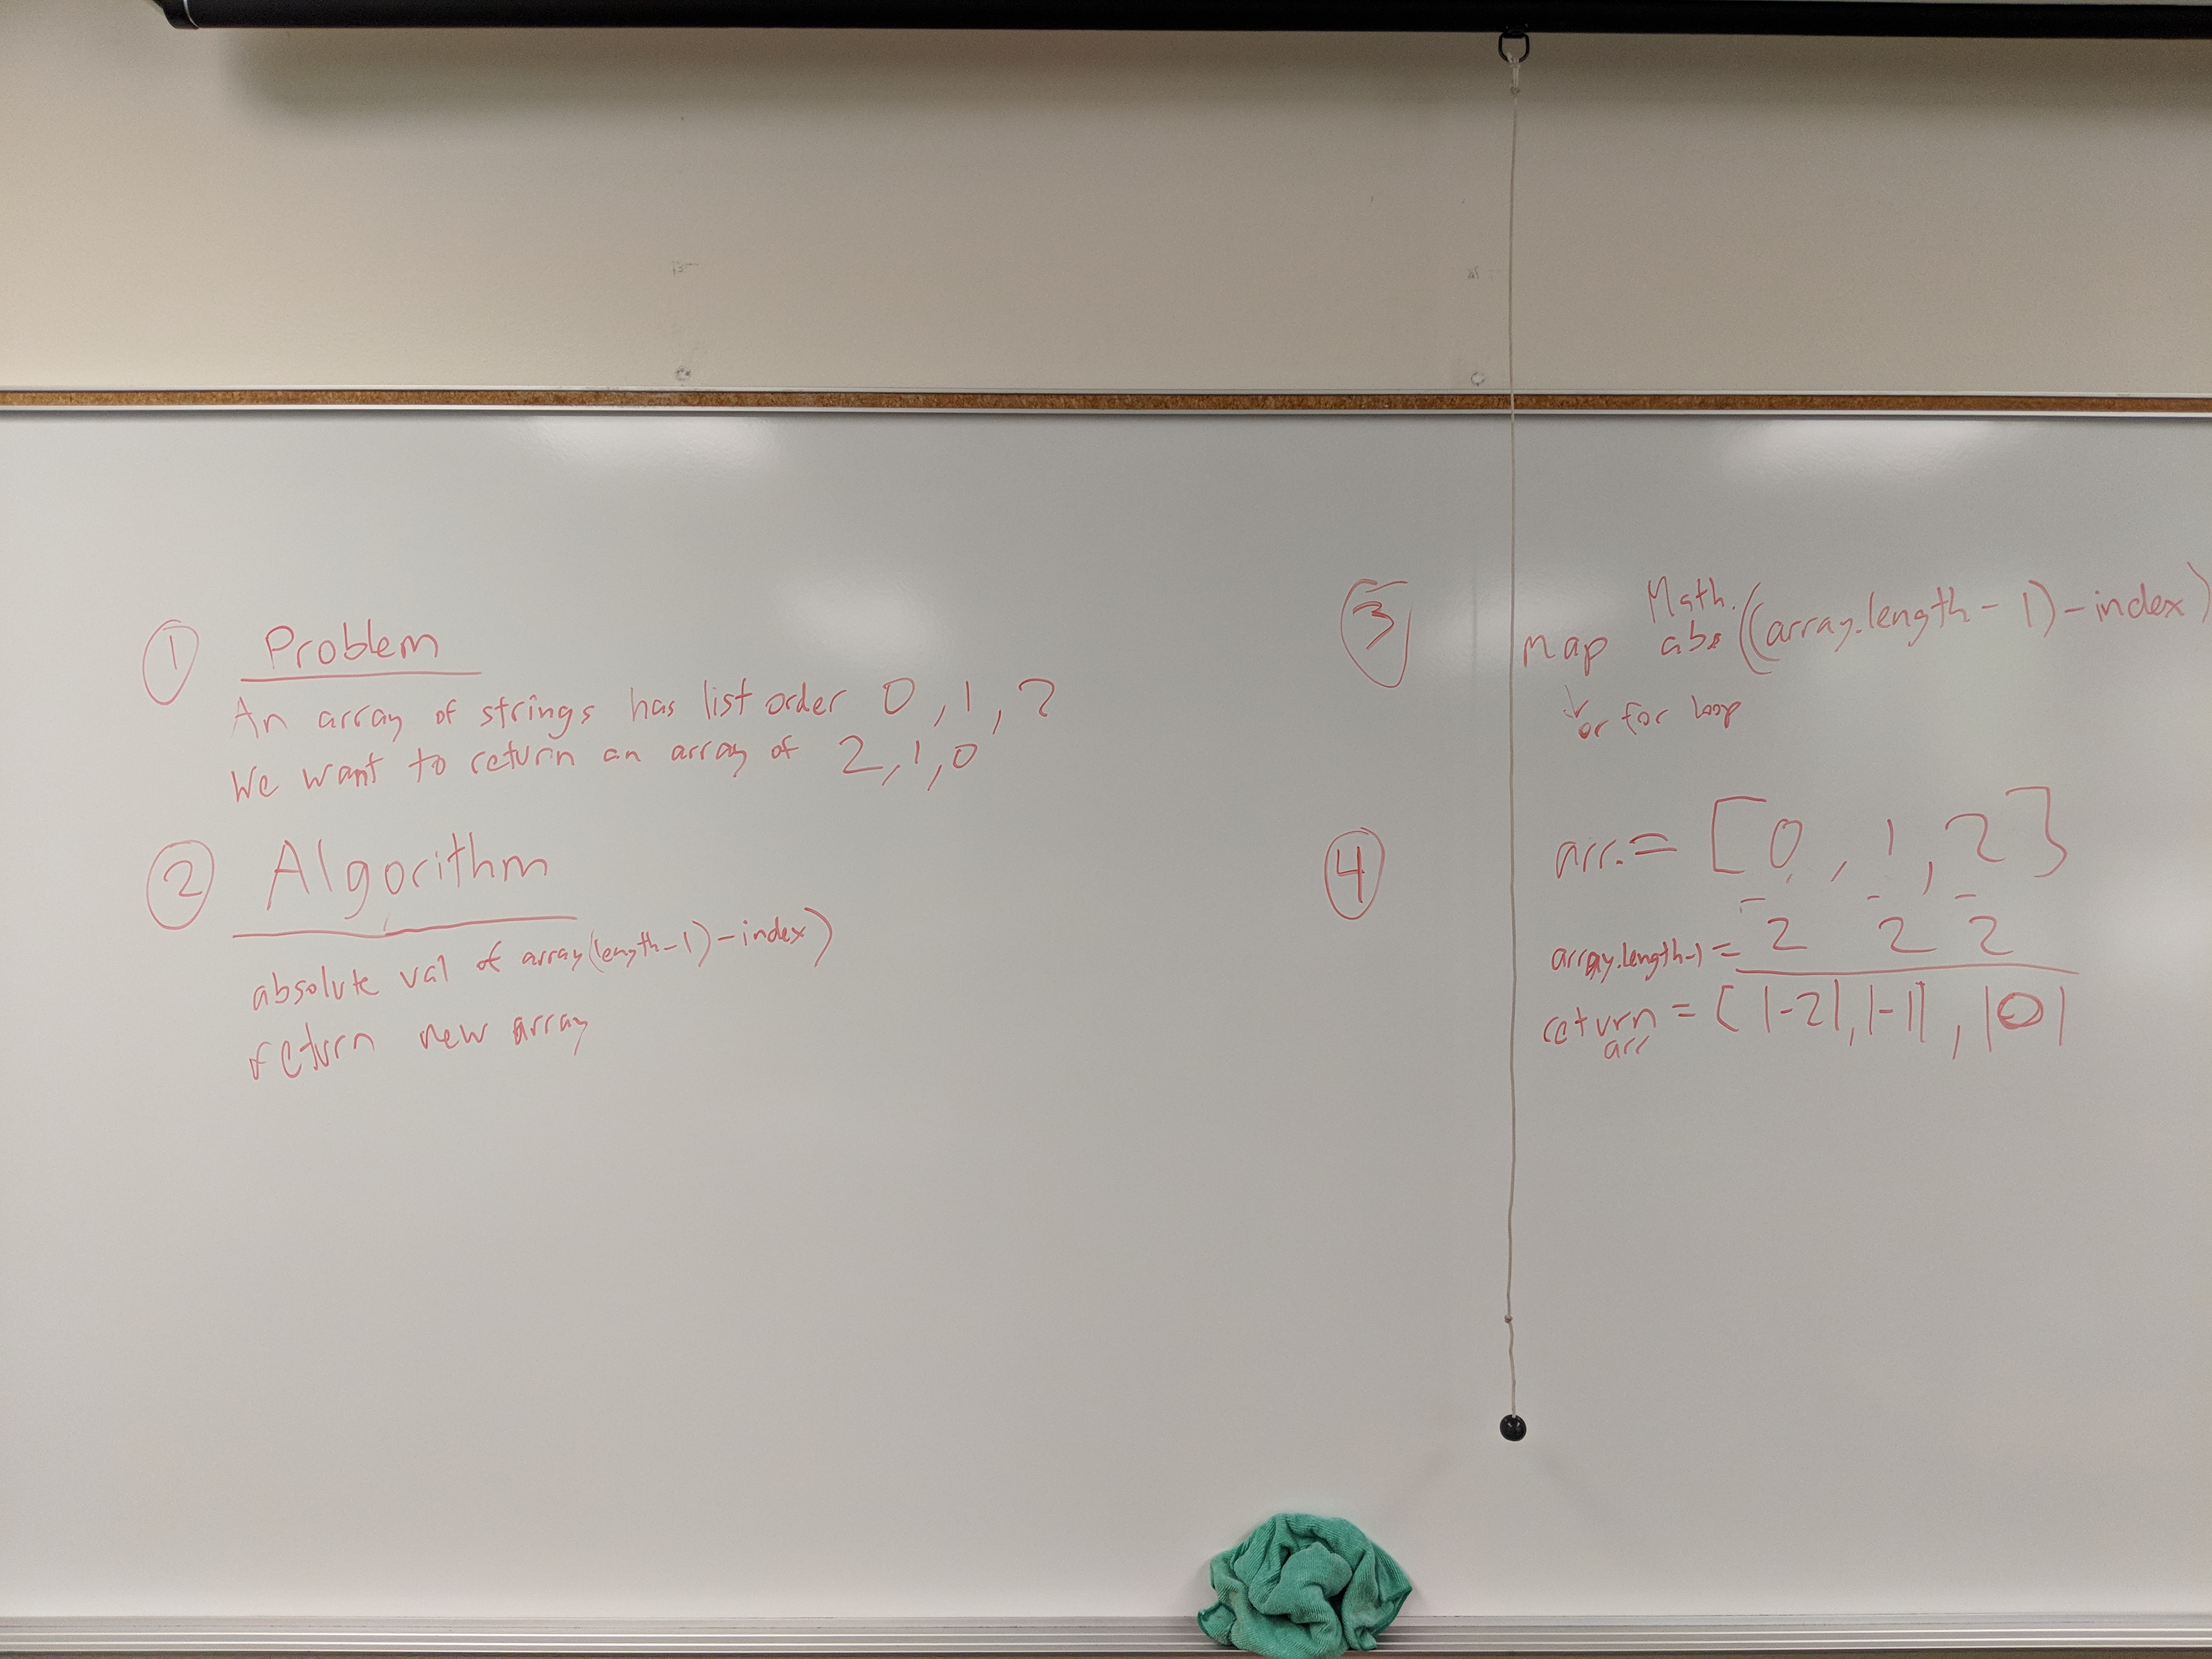 ① Problem
An array of strings has list order 0, 1, 2
We want to return an array of 2, 1, 0
② Algorithm
absolute val of array(length-1)-index)
return new array
③ Math.
map abs((array.length-1)-index)
or for loop
④ arr.= [0, 1, 2]
- - -
array.length-1 = 2 2 2
return = [|-2|, |-1|, |0|
arr